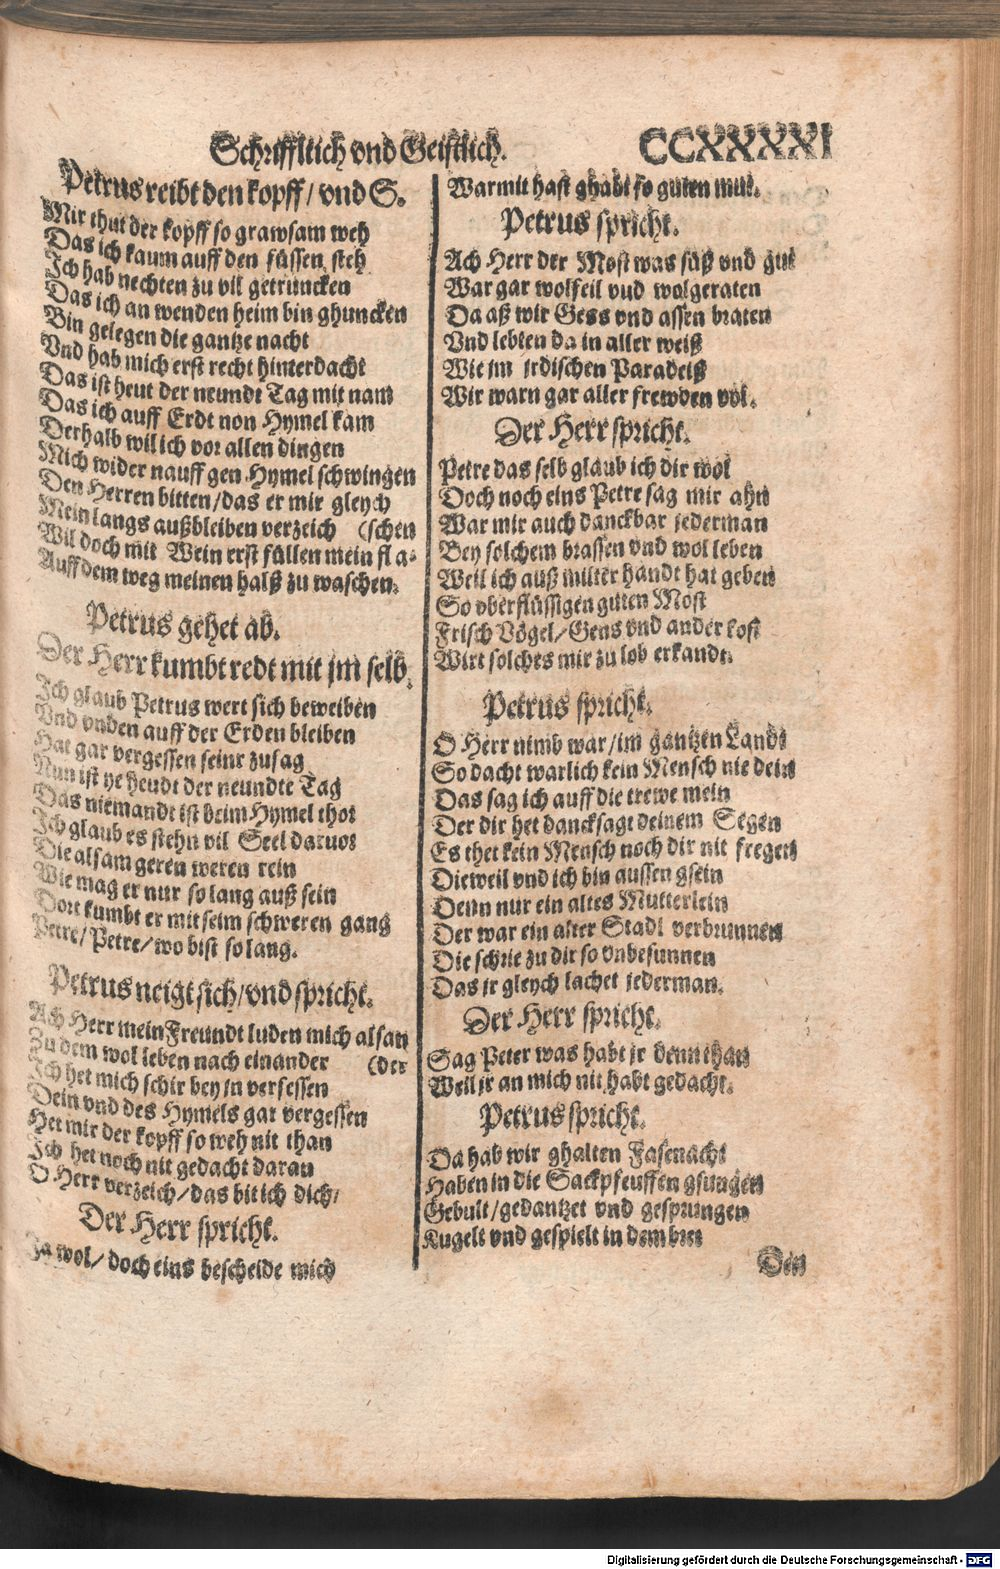 Schrifftlich vnd Geistlich.
CCXXXXI
Petrus reibt den kopff/ vnd S.
Mir thut der kopff so grawsam weh
Das ich kaum auff den füssen steh
Ich hab nechten zu vil getruncken
Das ich an wenden heim bin ghuncken
Bin gelegen die gantze nacht
Vnd hab mich erst recht hinterdacht
Das ist heut der neundt Tag mit nam
Das ich auff Erdt von Hymel kam
Derhalb wil ich vor allen dingen
Mich wider nauff gen Hymel schwingen
Den Herren bitten/das er mir gleych
Mein langs außbleiben verzeich (schen
Wil doch mit Wein erst füllen mein fla-
Auff dem weg meinen halß zu waschen.
Petrus gehet ab.
Der Herr kumbt redt mit jm selb.
Ich glaub Petrus wert sich beweiben
Vnd vnden auff der Erden bleiben
Hat gar vergessen seinr zusag
Nun ist ye heudt der neundte Tag
Das niemandt ist beim Hymel thor
Ich glaub es stehn vil Seel daruor
Die alsam geren weren rein
Wie mag er nur so lang auß sein
Dort kumbt er mit seim schweren gang
Petre/Petre/wo bist so lang.
Petrus neigt sich/vnd spricht.
Ach Herr mein Freundt luden mich alsan
Zu dem wol leben nach einander (der
Ich het mich schir bey jn versessen
Dein vnd des Hymels gar vergessen
Het mir der kopff so weh nit than
Ich het noch nit gedacht daran
O Herr verzeich/das bit ich dich/
Der Herr spricht.
Ja wol/ doch eins bescheide mich
Warmit hast ghabt so guten mut.
Petrus spricht.
Ach Herr der Most was süß vnd gut
War gar wolfeil vnd wolgeraten
Da aß wir Gess vnd assen braten
Vnd lebten da in aller weiß
Wie jm jrdischen Paradeiß
Wir warn gar aller frewden vol.
Der Herr spricht.
Petre das selb glaub ich dir wol
Doch noch eins Petre sag mir ahn
War mir auch danckbar jederman
Bey solchem brassen vnd wol leben
Weil ich auß milter handt hat geben
So vberflüssigen guten Most
Frisch Vögel/Gens vnd ander kost
Wirt solches mir zu lob erkandt.
Petrus spricht.
O Herr nimb war/im gantzen Landt
So dacht warlich kein Mensch nie dein
Das sag ich auff die trewe mein
Der dir het dancksagt deinem Segen
Es thet kein Mensch noch dir nit fregen
Dieweil vnd ich bin aussen gsein
Denn nur ein altes Mutterlein
Der war ein alter Stadl verbrunnen
Die schrie zu dir so vnbesunnen
Das jr gleych lachet jederman.
Der Herr spricht.
Sag Peter was habt jr denn than
Weil jr an mich nit habt gedacht.
Petrus spricht.
Da hab wir ghalten Fasenacht
Haben in die Sackpfeuffen gsungen
Gebult/gedantzet vnd gesprungen
Kugelt vnd gespielt in dem bret
Den
Digitalisierung gefördert durch die Deutsche Forschungsgemeinschaft - DFG